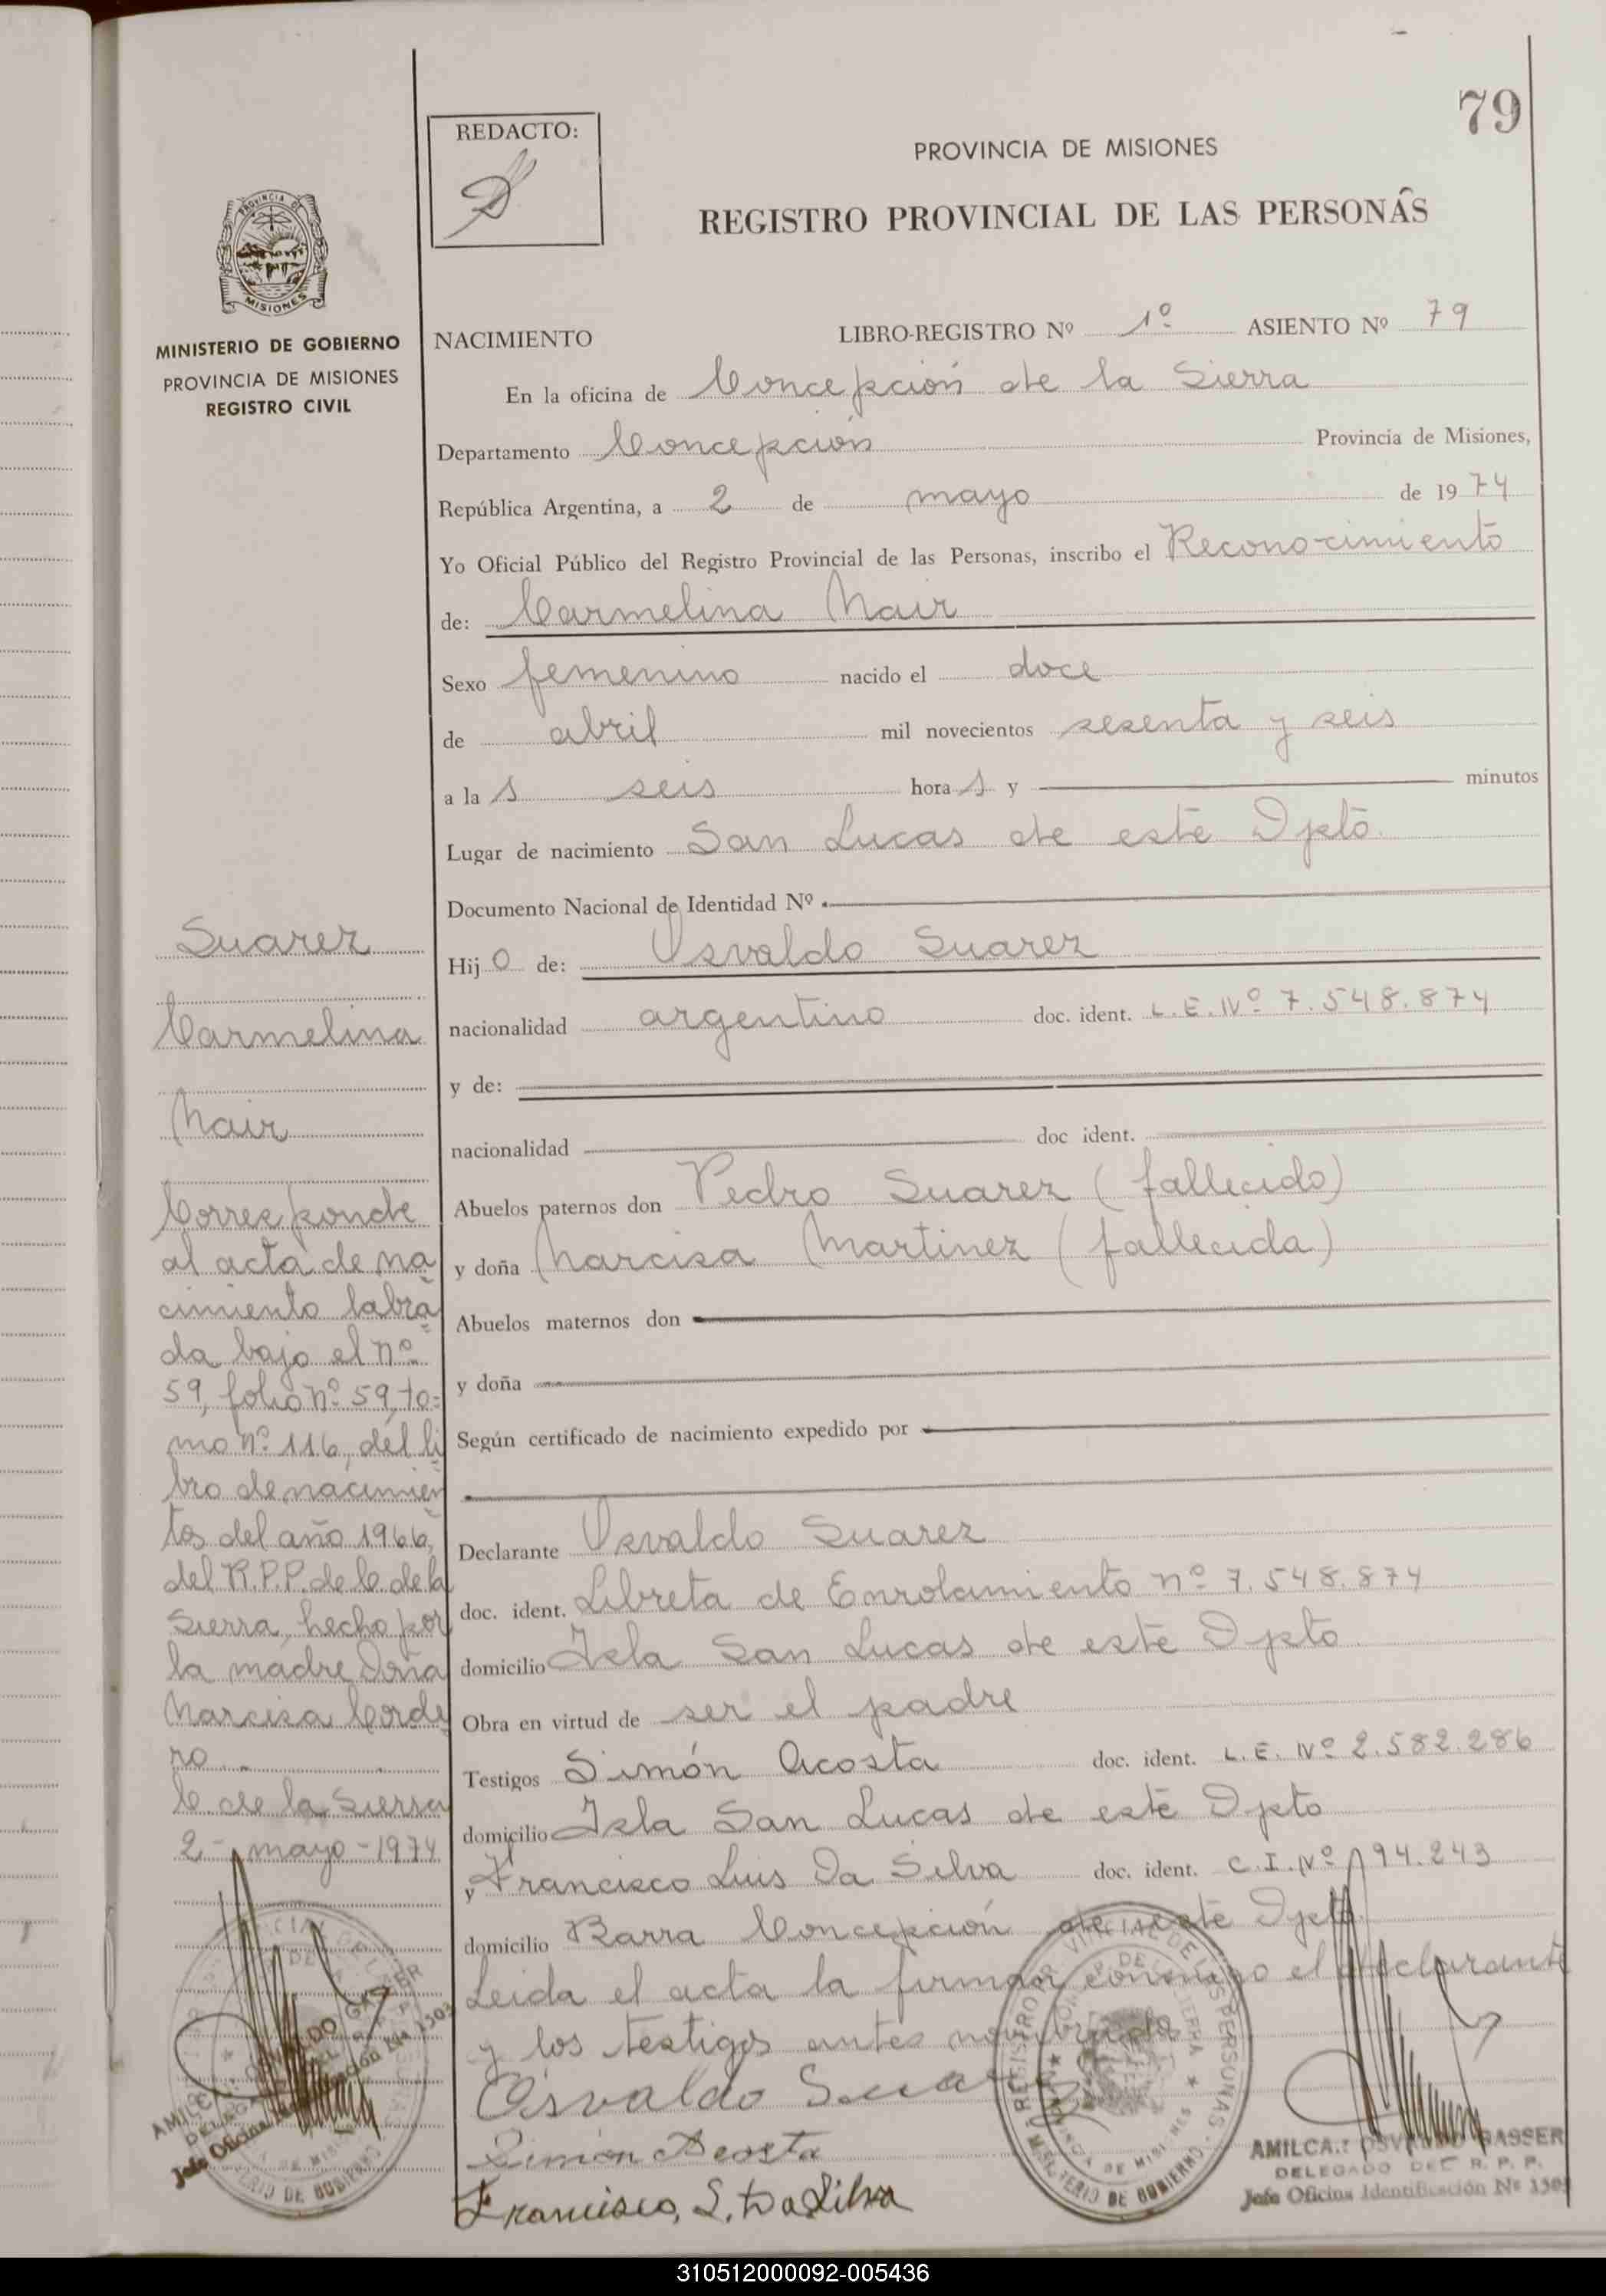 79
REDACTO:
PROVINCIA DE MISIONES
REGISTRO PROVINCIAL DE LAS PERSONAS
PROVINCIA DE
MISIONES
MINISTERIO DE GOBIERNO
PROVINCIA DE MISIONES
REGISTRO CIVIL
NACIMIENTO LIBRO-REGISTRO Nº 1º ASIENTO Nº 79
En la oficina de Concepción de la Sierra
Departamento Concepción Provincia de Misiones,
República Argentina, a 2 de mayo de 1974
Yo Oficial Público del Registro Provincial de las Personas, inscribo el Reconocimiento
de: Carmelina Nair
Sexo femenino nacido el doce
de abril mil novecientos sesenta y seis
a la s seis hora s y minutos
Lugar de nacimiento San Lucas de este Dpto.
Documento Nacional de Identidad Nº
Hij o de: Osvaldo Suarez
nacionalidad argentino doc. ident. L.E. Nº 7.548.874
y de:
nacionalidad doc ident.
Abuelos paternos don Pedro Suarez (fallecido)
y doña Narcisa Martinez (fallecida)
Abuelos maternos don
y doña
Según certificado de nacimiento expedido por
Declarante Osvaldo Suarez
doc. ident. Libreta de Enrolamiento nº 7.548.874
domicilio Isla San Lucas de este Dpto.
Obra en virtud de ser el padre
Testigos Simón Acosta doc. ident. L.E. Nº 2.582.286
domicilio Isla San Lucas de este Dpto
y Francisco Luis Da Silva doc. ident. C.I. Nº 194.243
domicilio Barra Concepción de este Dpto.
Leida el acta la firman conmigo el declarante
y los testigos antes nombrados
Osvaldo Suarez
Simon Acosta
Francisco, L. Da Silva
Suarez
Carmelina
Nair
Corresponde
al acta de na
cimiento labra
da bajo el nº
59, folio nº 59, to=
mo nº 116, del li
bro de nacimien
tos del año 1966,
del R.P.P. de C. de la
Sierra, hecho por
la madre Doña
Narcisa Corde
ro
C. de la Sierra
2- mayo - 1974
AMILCAR OSVALDO GASSER
DELEGADO DEL R. P. P.
Jefe Oficina Identificación Nº 1503
REGISTRO PROVINCIAL DE LAS PERSONAS
MINISTERIO DE GOBIERNO
AMILCAR OSVALDO GASSER
DELEGADO DEL R. P. P.
Jefe Oficina Identificación Nº 1503
310512000092-005436